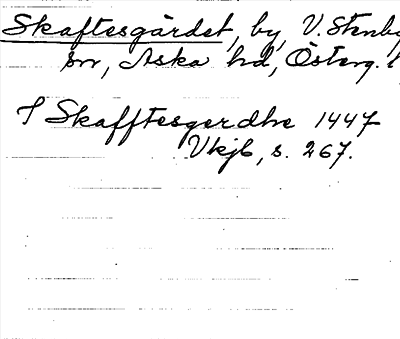 Skaftesgärdet, by, V. Stenby
sn, Aska hd, Österg. l
I Skafftesgerdhe 1447
Vkjb, s. 267.